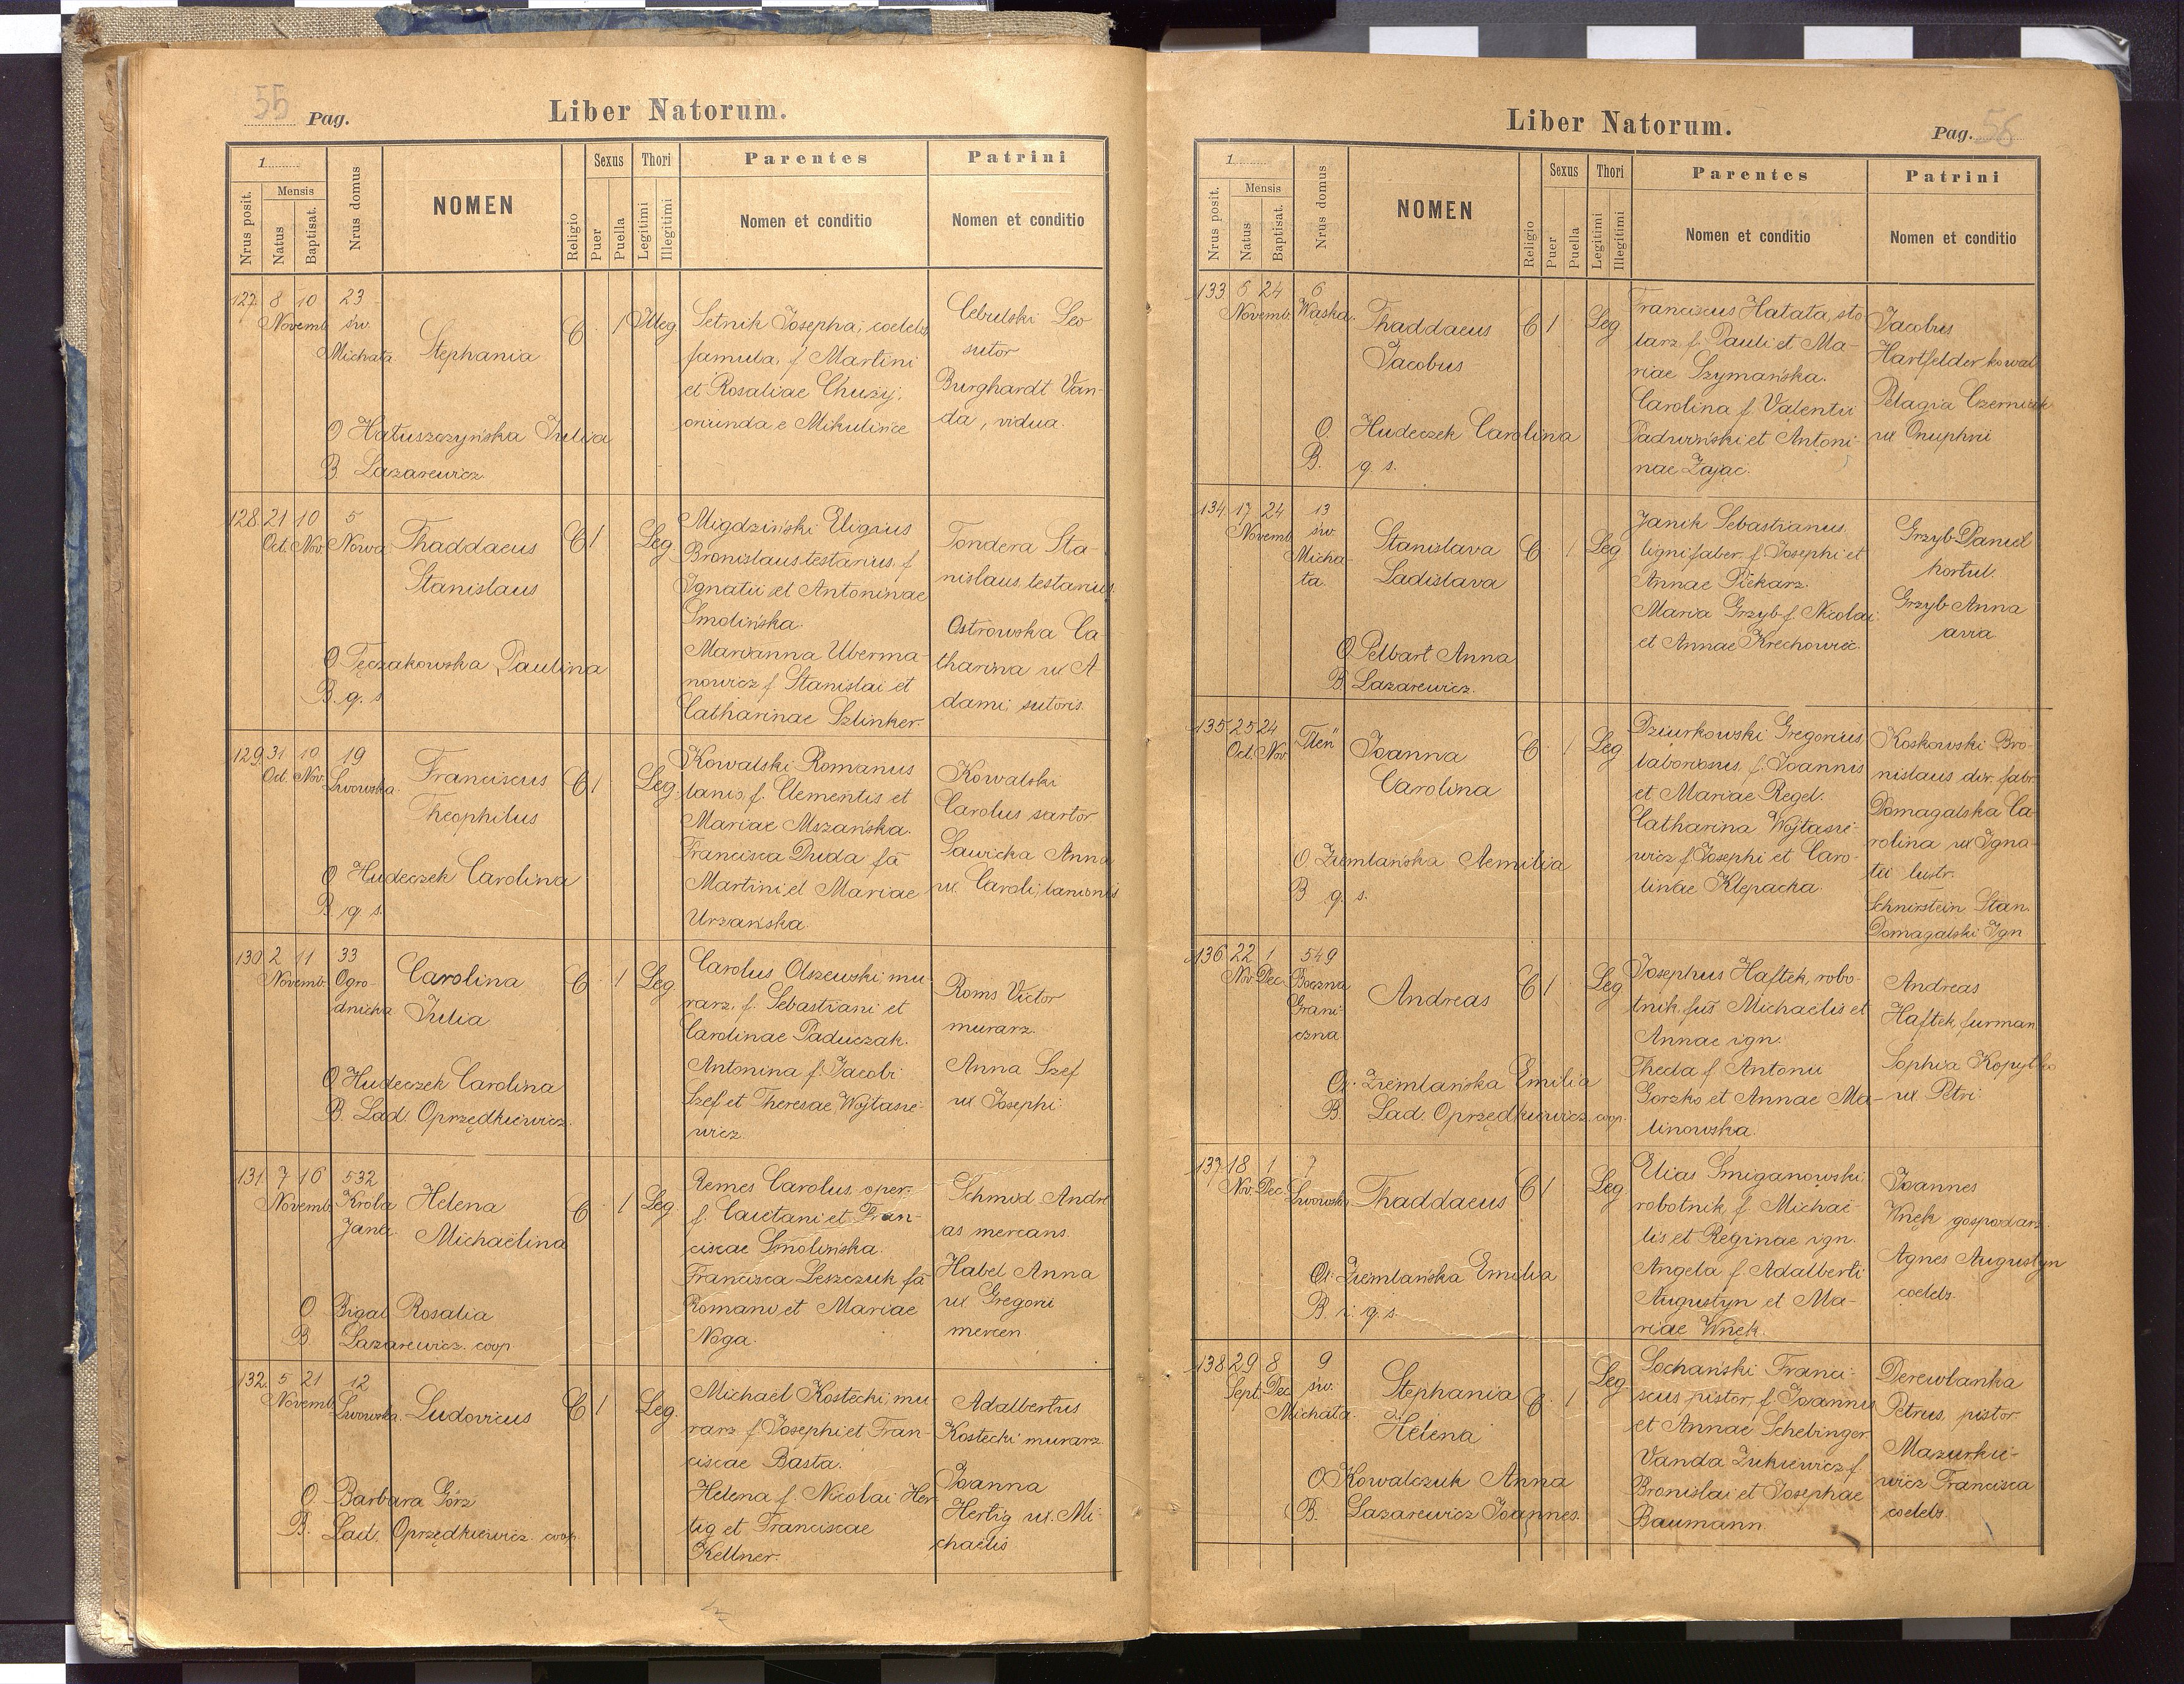 55 Pag.
Liber Natorum.
1
Nrus posit.
Mensis
Natus
Baptisat.
Nrus domus
NOMEN
Religio
Sexus
Puer
Puella
Thori
Legitimi
Illegitimi
Parentes
Nomen et conditio
Patrini
Nomen et conditio
127 8 10 23
Novemb. św.
Michała
Stephania
C 1 Illeg.
Letnik Josepha, coelebs
famula, f. Martini
et Rosaliae Chuzy,
oriunda e Mikulińce
Cebulski Leo
sutor
Burghardt Van-
da, vidua.
O Hałuszczyńska Julia
B. Lazarewicz
128 21 10 5
Oct. Nov. Nowa
Thaddaeus
Stanislaus
C 1 Leg
Migdziński Eligius
Bronislaus testarius, f.
Ignatii et Antoninae
Smolińska.
Marianna Uberma-
nowicz f. Stanislai et
Catharinae Szlinker.
Tondera Sta-
nislaus, testarius
Ostrowska Ca-
tharina ux A-
dami sutoris.
O Tęczakowska Paulina
B. q. s.
129 31 10 19
Oct. Nov. Lwowska.
Franciscus
Theophilus
C 1 Leg.
Kowalski Romanus
lanio, f. Clementis et
Mariae Mszańska.
Francisca Duda fa
Martini et Mariae
Urzańska.
Kowalski
Carolus sartor
Sawicka Anna
ux. Caroli, lanionis
O Hudeczek Carolina
B q. s.
130 2 11 33
Novemb. Ogro-
dnicka
Carolina
Julia
C 1 Leg
Carolus Olszewski, mu-
rarz, f. Sebastiani et
Carolinae Paduczak.
Antonina f. Jacobi
Szef et Theresae Wojtasie-
wicz.
Roms Victor
murarz.
Anna Szef
ux Josephi
O Hudeczek Carolina
B. Lad. Oprzędkiewicz.
131 7 16 532
Novemb. Króla
Jana.
Helena
Michaëlina
C 1 Leg.
Remes Carolus, oper.
f. Caietani et Fran-
ciscae Smolińska.
Francisca Leszczuk fa
Romani et Mariae
Noga.
Schmid Andre
as mercans.
Habel Anna
ux Gregorii
mercen
O. Bigal Rosalia
B. Lazarewicz. coop
132. 5 21 12
Novemb. Lwowska.
Ludovicus
C 1 Leg.
Michaël Kostecki, mu-
rarz f. Josephi et Fran-
ciscae Basta.
Helena f. Nicolai Her-
tig et Franciscae
Kellner.
Adalbertus
Kostecki murarz.
Joanna
Hertig ux. Mi-
chaëlis
O. Barbara Górz
B. Lad. Oprzędkiewicz. coop.
Liber Natorum.
Pag. 56
1
Nrus posit.
Mensis
Natus
Baptisat.
Nrus domus
NOMEN
Religio
Sexus
Puer
Puella
Thori
Legitimi
Illegitimi
Parentes
Nomen et conditio
Patrini
Nomen et conditio
133 5 24 6
Novemb. Wąska.
Thaddaeus
Jacobus
C 1 Leg
Franciscus Hałata, sto-
larz, f. Pauli et Ma-
riae Szymańska.
Carolina f. Valentii
Padwiński et Antoni-
nae Zając.
Jacobus
Hartfelder kowal
Pelagia Czerniak
ux Onuphrii
O. Hudeczek Carolina
B. q. s.
134 17 24 13
Novemb. św.
Micha-
ła.
Stanislava
Ladislava
C 1 Leg
Janik Sebastianus,
lignifaber, f. Josephi et
Annae Piekarz.
Maria Grzyb f. Nicolai
et Annae Krechowiec.
Grzyb Daniel
hortul.
Grzyb Anna
avia.
O Pelbart Anna
B. Lazarewicz.
135 25 24 "Tlen"
Oct. Nov.
Joanna
Carolina
C 1 Leg
Dziurkowski Gregorius,
laboriosus, f. Joannis
et Mariae Regel.
Catharina Wojtasie-
wicz f. Josephi et Caro-
linae Klepacka.
Koskowski Bro-
nislaus dir. fabr.
Domagalska Ca-
rolina ux Igna-
tii lustr.
Schnirstein Stan.
Domagalski Ign
O Ziemlańska Aemilia
B q. s.
136 22 1 549
Nov. Dec. Boczna
Grani-
czna
Andreas
C 1 Leg
Josephus Haftek, robo-
tnik, fus Michaëlis et
Annae ign.
Theda f. Antonii
Gorzko et Annae Ma-
linowska.
Andreas
Haftek, furman
Sophia Kopytko
ux Petri.
O. Ziemlańska Emilia
B. Lad. Oprzędkiewicz. coop.
137 18 1 7
Nov. Dec. Lwowska
Thaddaeus
C 1 Leg
Elias Smiganowski,
robotnik, f. Michaë-
lis et Reginae ign.
Angela f. Adalberti
Augustyn et Ma-
riae Wnęk.
Joannes
Wnęk gospodarz.
Agnes Augustyn
coelebs.
O. Ziemlańska Emilia
B. i. q. s.
138 29 8 9
Sept. Dec św.
Michała.
Stephania
Helena
C. 1 Leg
Sochański Franci-
scus pistor, f. Joannis
et Annae Schebinger
Vanda Zukiewicz f.
Bronislai et Josephae
Baumann.
Derewlanka
Petrus, pistor.
Mazurkie-
wicz Francisca
coelebs.
O Kowalczuk Anna
B. Lazarewicz Joannes.